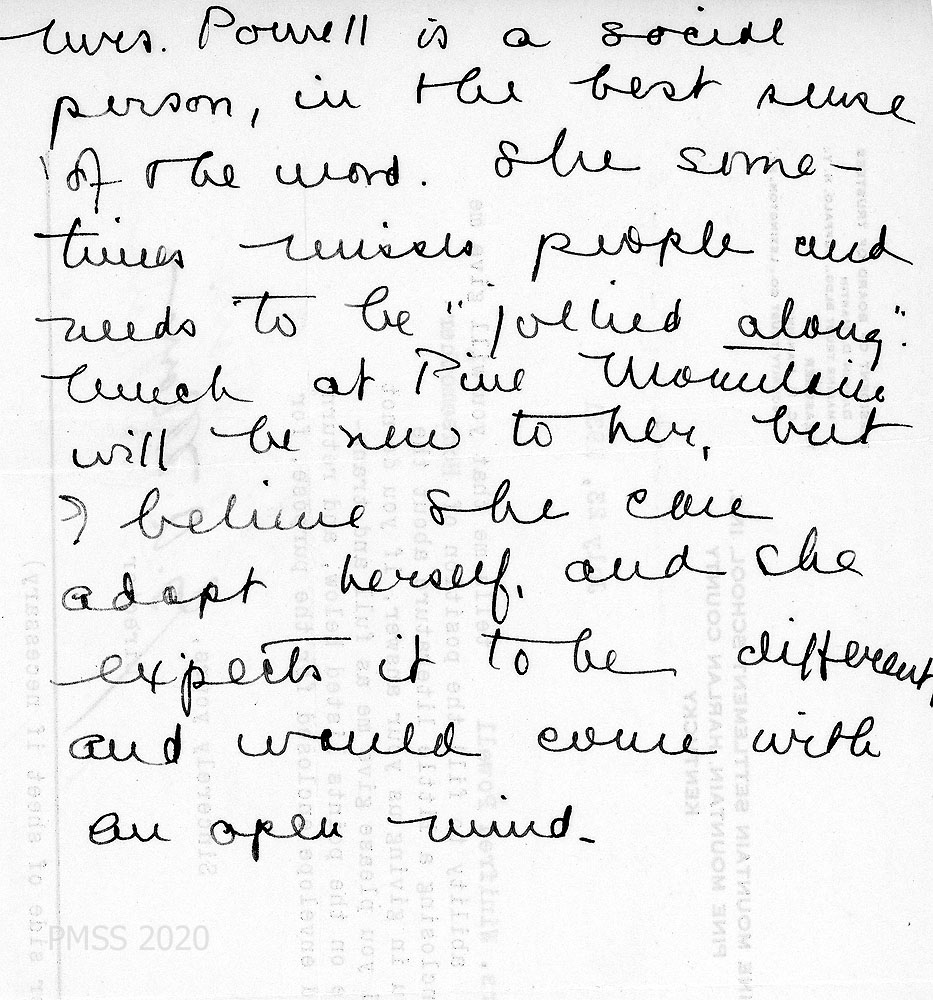 Mrs. Powell is a social
person, in the best sense
of the word. She some-
times misses people and
needs to be "jollied along".
Much at Pine Mountain
will be new to her, but
I believe she can
adapt herself, and she
expects it to be different,
and would come with
an open mind.
PMSS 2020